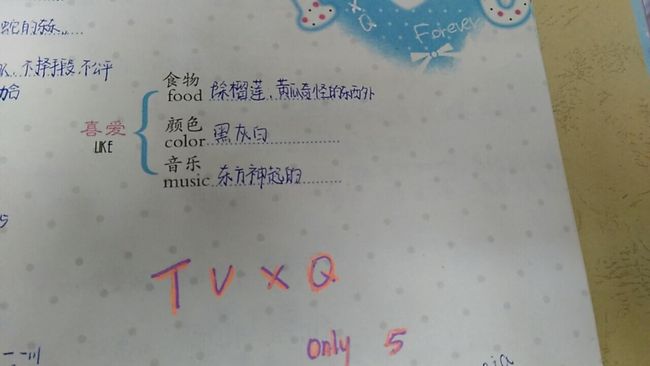 XQ
Forever
不择手段,不公平
食物
food 除榴莲、黄瓜奇怪的东西外
喜爱
LIKE
颜色
color 黑灰白
音乐
music 东方神起的
5
TVXQ
only 5